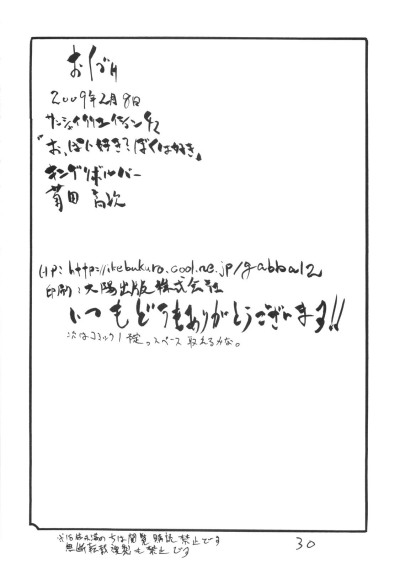 おくづけ
2009年2月8日
サンシャインクリエイション42
『お、ぱい好き?ぼくは好き』
キングリボルバー
菊田 高次
HP: http://ikebukuro.cool.ne.jp/gabba12
印刷:大陽出版株式会社
いつもどうもありがとうございます!!
次はコミック1予定。スペース取れるかな。
※18歳未満の方は閲覧購読禁止です
無断転載複製も禁止です
30